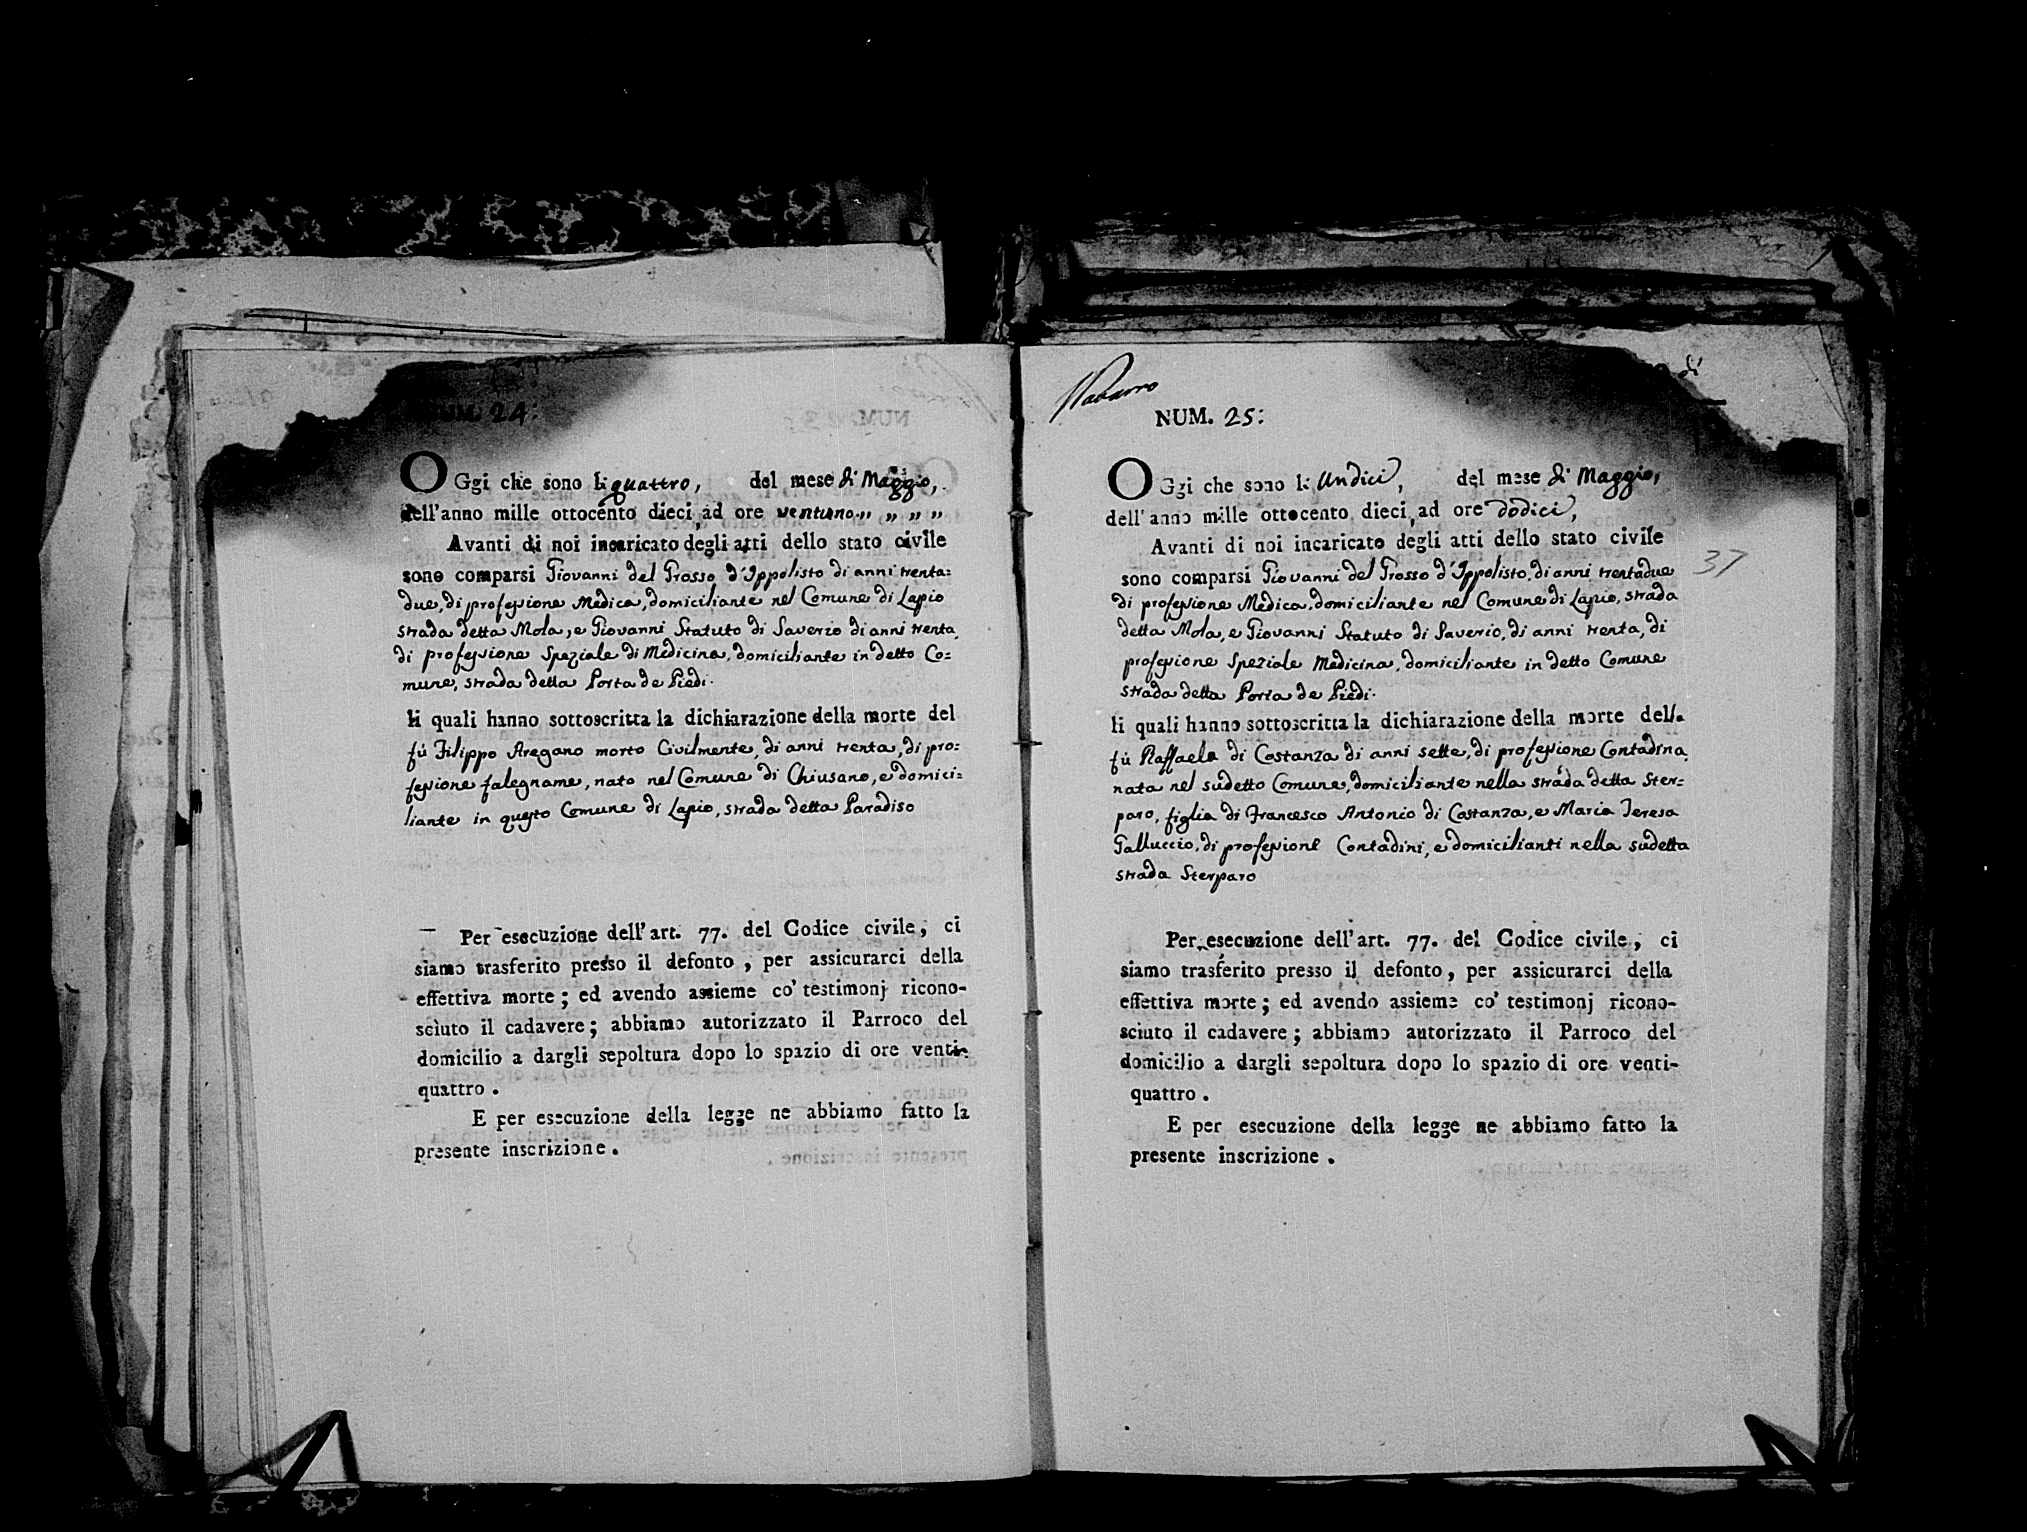 NUM. 24:
OGgi che sono li quattro, del mese di Maggio,
dell'anno mille ottocento dieci, ad ore ventuno „ „ „ „
Avanti di noi incaricato degli atti dello stato civile
sono comparsi Giovanni del Grosso d'Ippolisto di anni trenta=
due, di professione Medica, domiciliante nel Comune di Lapio
strada detta Mola, e Giovanni Statuto di Saverio di anni trenta,
di professione Speziale di Medicina, domiciliante in detto Co=
mune, strada detta Porta de Piedi.
li quali hanno sottoscritta la dichiarazione della morte del
fù Filippo Aregano morto Civilmente, di anni trenta, di pro=
fessione falegname, nato nel Comune di Chiusano, e domici=
liante in questo Comune di Lapio, strada detta Paradiso
Per esecuzione dell'art. 77. del Codice civile, ci
siamo trasferito presso il defonto, per assicurarci della
effettiva morte; ed avendo assieme co' testimonj ricono-
sciuto il cadavere; abbiamo autorizzato il Parroco del
domicilio a dargli sepoltura dopo lo spazio di ore venti-
quattro.
E per esecuzione della legge ne abbiamo fatto la
presente inscrizione.
Navarro
di
NUM. 25:
OGgi che sono li Undici, del mese di Maggio,
dell'anno mille ottocento dieci, ad ore dodici,
Avanti di noi incaricato degli atti dello stato civile
37
sono comparsi Giovanni del Grosso d'Ippolisto, di anni trentadue
di professione Medica, domiciliante nel Comune di Lapio, strada
detta Mola, e Giovanni Statuto di Saverio, di anni trenta, di
professione Speziale Medicina, domiciliante in detto Comune
strada detta Porta de Piedi.
li quali hanno sottoscritta la dichiarazione della morte della
fù Raffaela di Costanza di anni sette, di professione Contadina,
nata nel sudetto Comune, domiciliante nella strada detta Ster=
paro, figlia di Francesco Antonio di Costanza, e Maria Teresa
Galluccio, di professione Contadini, e domicilianti nella sudetta
strada Sterparo
Per esecuzione dell'art. 77. del Codice civile, ci
siamo trasferito presso il defonto, per assicurarci della
effettiva morte; ed avendo assieme co' testimonj ricono-
sciuto il cadavere; abbiamo autorizzato il Parroco del
domicilio a dargli sepoltura dopo lo spazio di ore venti-
quattro.
E per esecuzione della legge ne abbiamo fatto la
presente inscrizione.